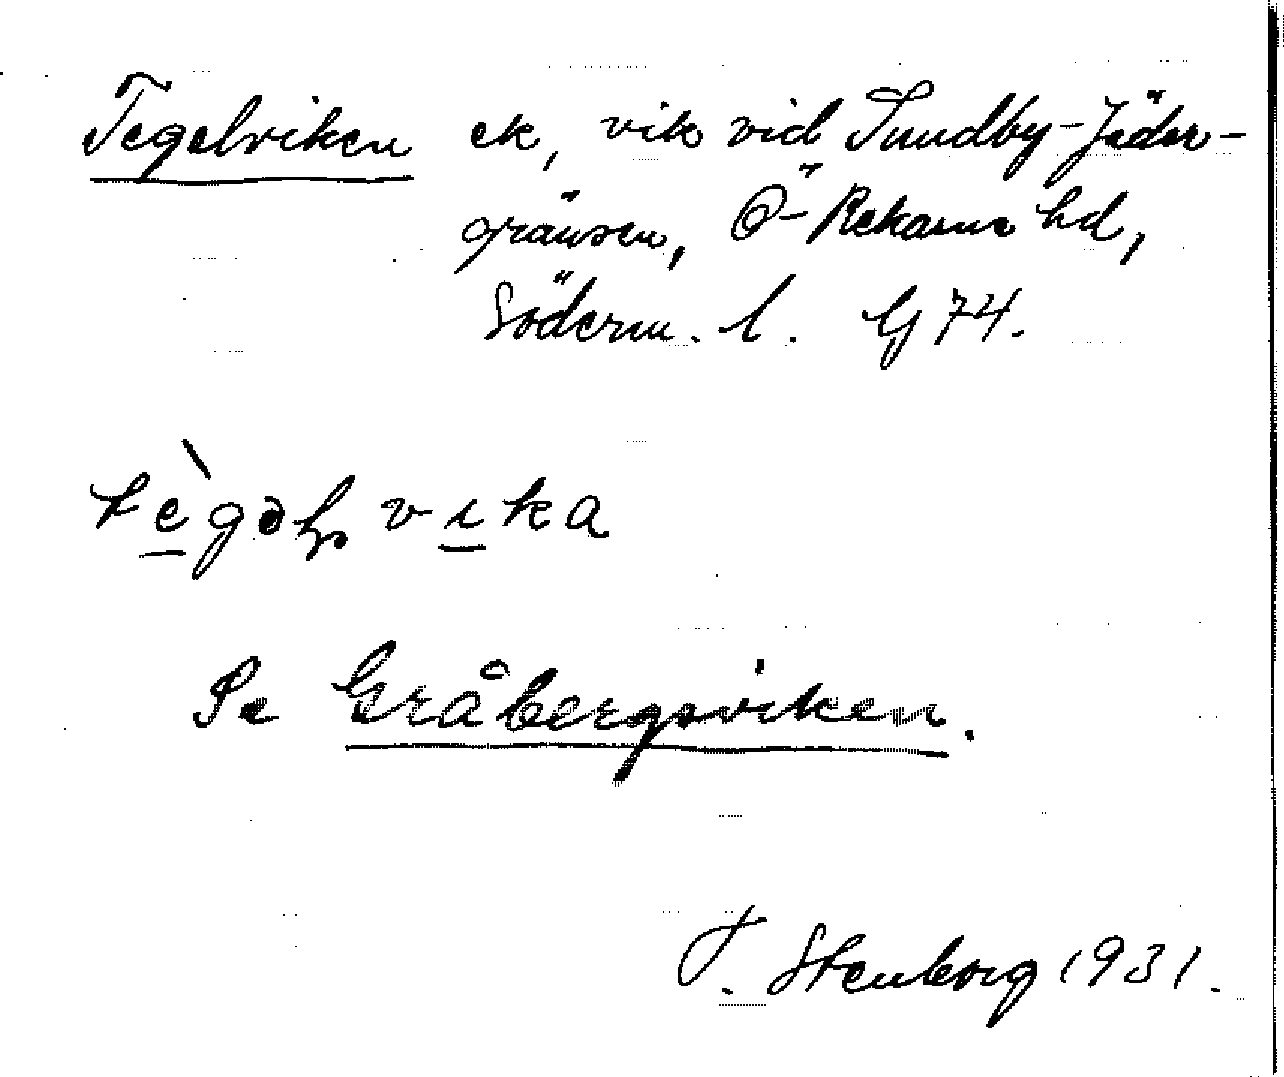 Tegelviken ek, vik vid Sundby-Jäder-
gränsen, Ö-Rekarne hd,
Söderm. l. G 74.
tègəlvika
Se Gråbergsviken.
Stenborg 1931.